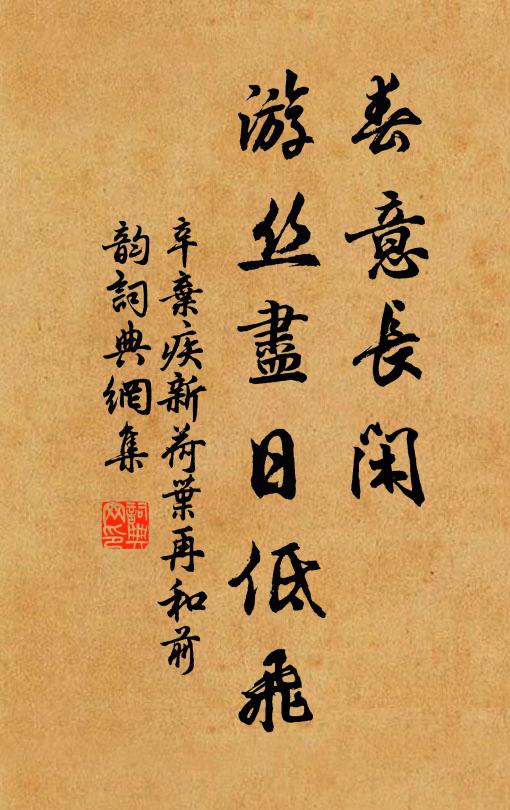 春意長閑
游丝盡日低飛
辛棄疾新荷葉再和前
韵詞典網集
詞典网印